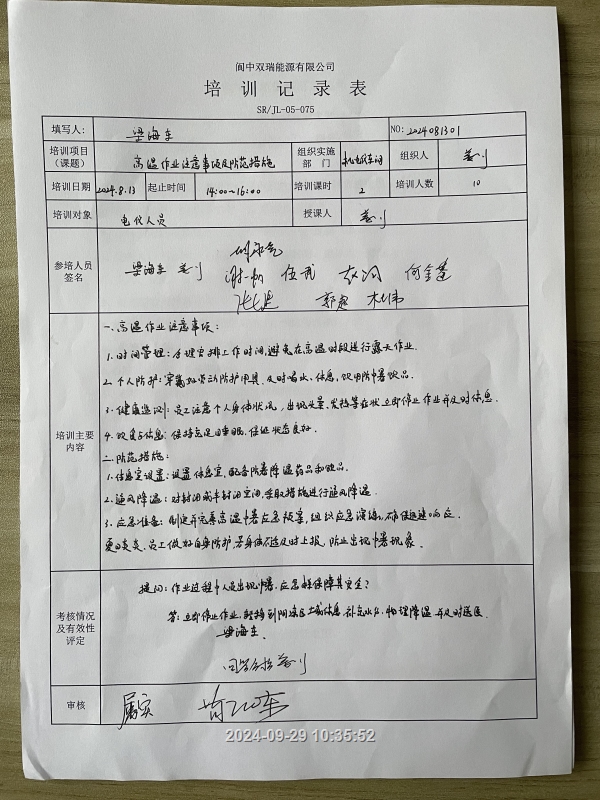 阆中双瑞能源有限公司
培训记录表
SR/JL-05-075
填写人： 梁海东 NO: 2024081301
培训项目（课题） 高温作业注意事项及防范措施 组织实施部门 机电仪车间 组织人
培训日期 2024.8.13 起止时间 14:00~16:00 培训课时 2 培训人数 10
培训对象 电仪人员 授课人
参培人员签名 梁海东 伍 何金
郭
培训主要内容
一、高温作业注意事项：
1. 时间管理：合理安排工作时间，避免在高温时段进行露天作业。
2. 个人防护：穿戴好劳动防护用具，及时喝水、休息，饮用防中暑饮品。
3. 健康监测：员工注意个人身体状况，出现头晕、发热等症状立即停止作业并及时休息。
4. 饮食与休息：保持充足的睡眠，保证状态良好。
二、防范措施：
1. 休息室设置：设置休息室，配备防暑降温药品和饮品。
2. 通风降温：对封闭或半封闭空间，采取措施进行通风降温。
3. 应急准备：制定并完善高温中暑应急预案，组织应急演练，确保迅速响应。
夏日炎炎，员工做好自身防护，若身体不适及时上报，防止出现中暑现象。
考核情况及有效性评定
提问：作业过程中人员出现中暑，应怎样保障其安全？
答：立即停止作业，转移到阴凉区域休息，补充水分，物理降温并及时送医。
梁海东
审核 属实
2024-09-29 10:35:52